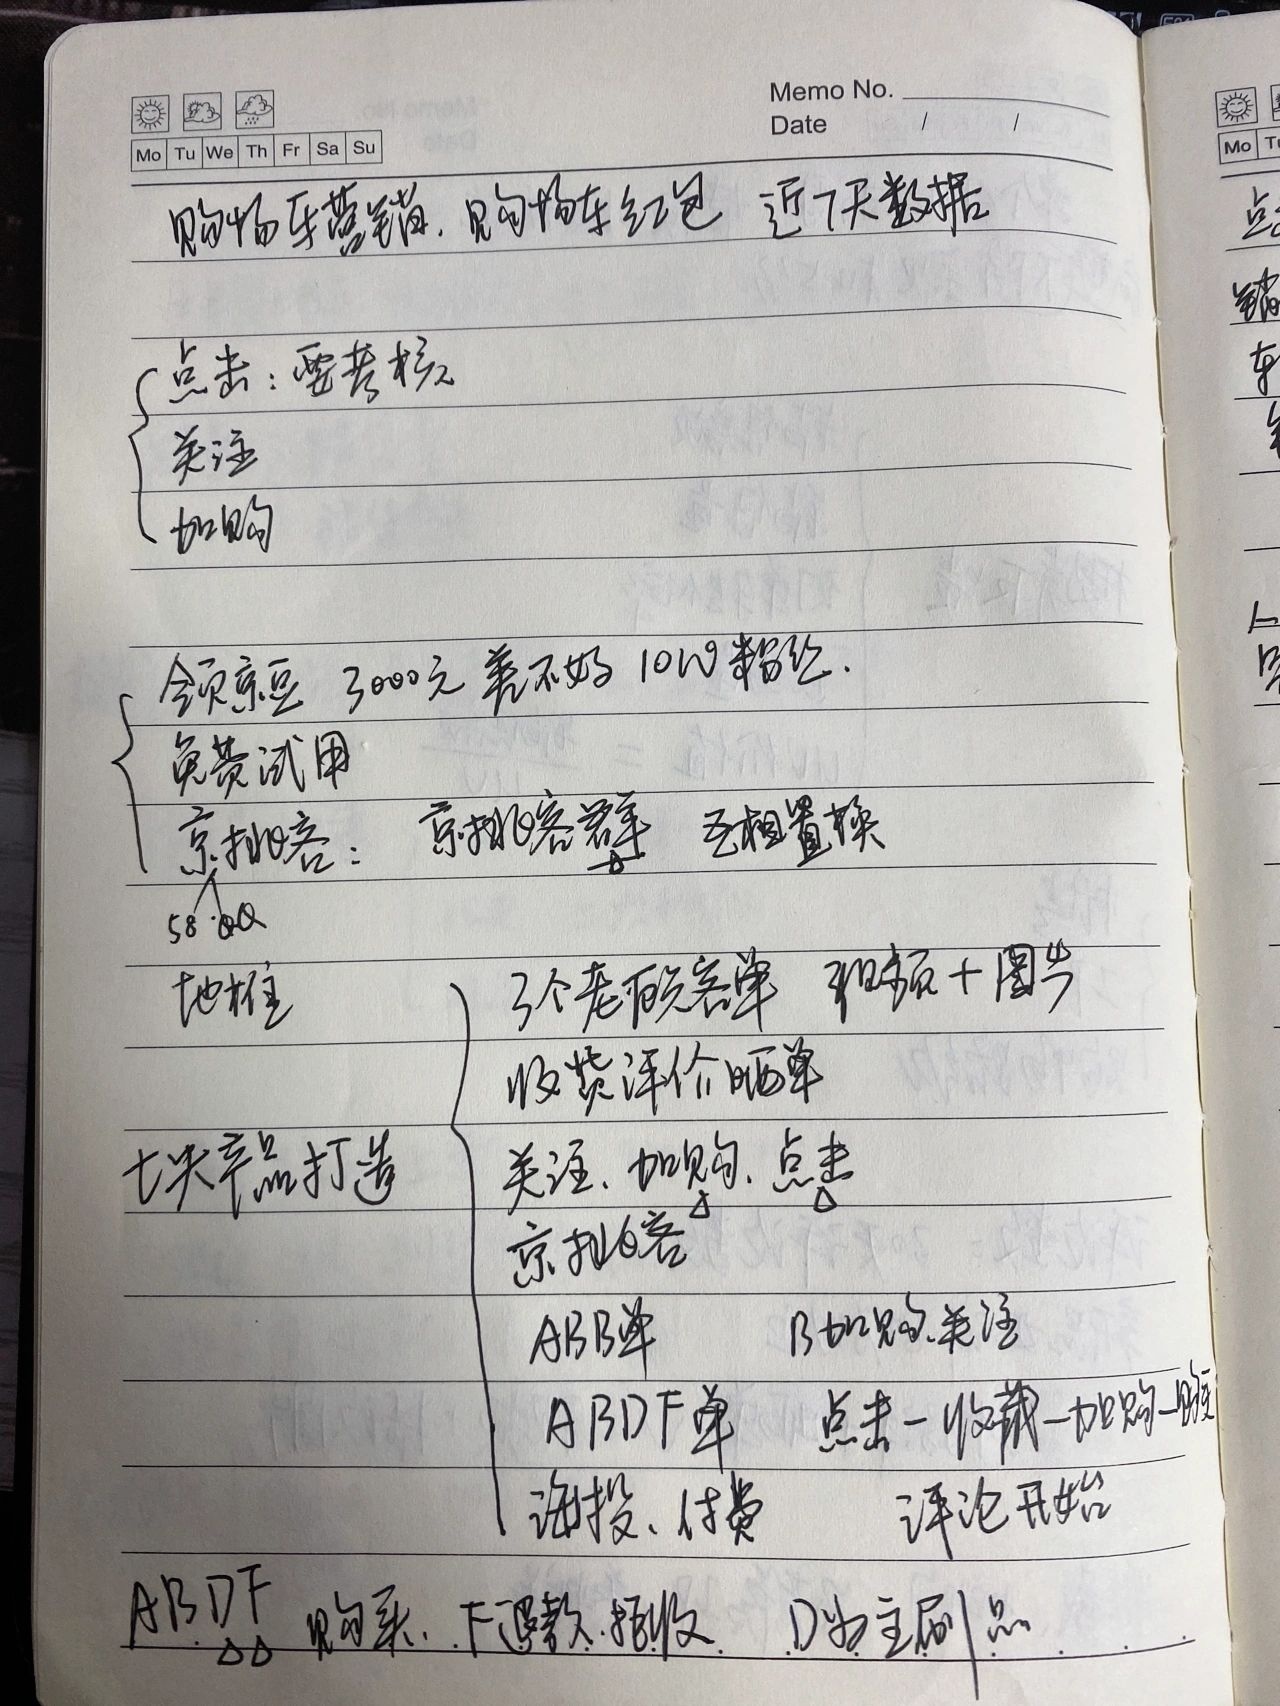 Memo No.
Date / /
Mo Tu We Th Fr Sa Su
购物车营销、购物车红包 近7天数据
点击：要考核
关注
加购
领京豆 3000元 差不好 10W粉丝.
免费试用
京挑客： 京挑客群 互相置换
58 QQ
地推
3个老顾客单 视频+图片
收费评价晒单
七天产品打造
关注、加购、点击
京挑客
ABB单 B加购、关注
ABDF单 点击-收藏-加购-购买
海投、付费 评论开始
ABDF 购买、F退款.拒收 D为主刷品
Mo